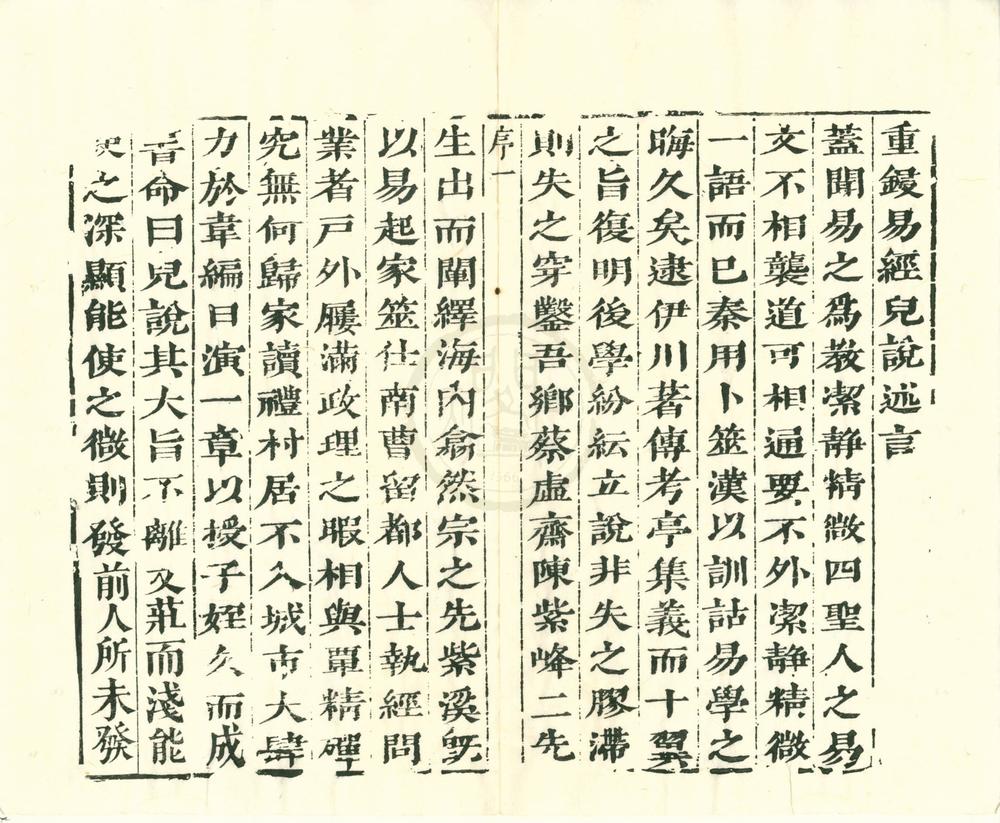 重鋟易經兒說述言
蓋聞易之爲教潔静精微四聖人之易
文不相襲道可相通要不外潔静精微
一語而已秦用卜筮漢以訓詁易學之
晦久矣逮伊川著傳考亭集義而十翼
之旨復明後學紛紜立說非失之膠滯
則失之穿鑿吾鄉蔡虛齋陳紫峰二先
序一
生出而闡繹海內翕然宗之先紫溪旣
以易起家筮仕南曹留都人士執經問
業者戸外屨滿政理之暇相與覃精硏
究無何歸家讀禮村居不入城市大肆
力於韋編日演一章以授子姪久而成
書命曰兒說其大旨不離 莊而淺能
使之深顯能使之微則發前人所未發